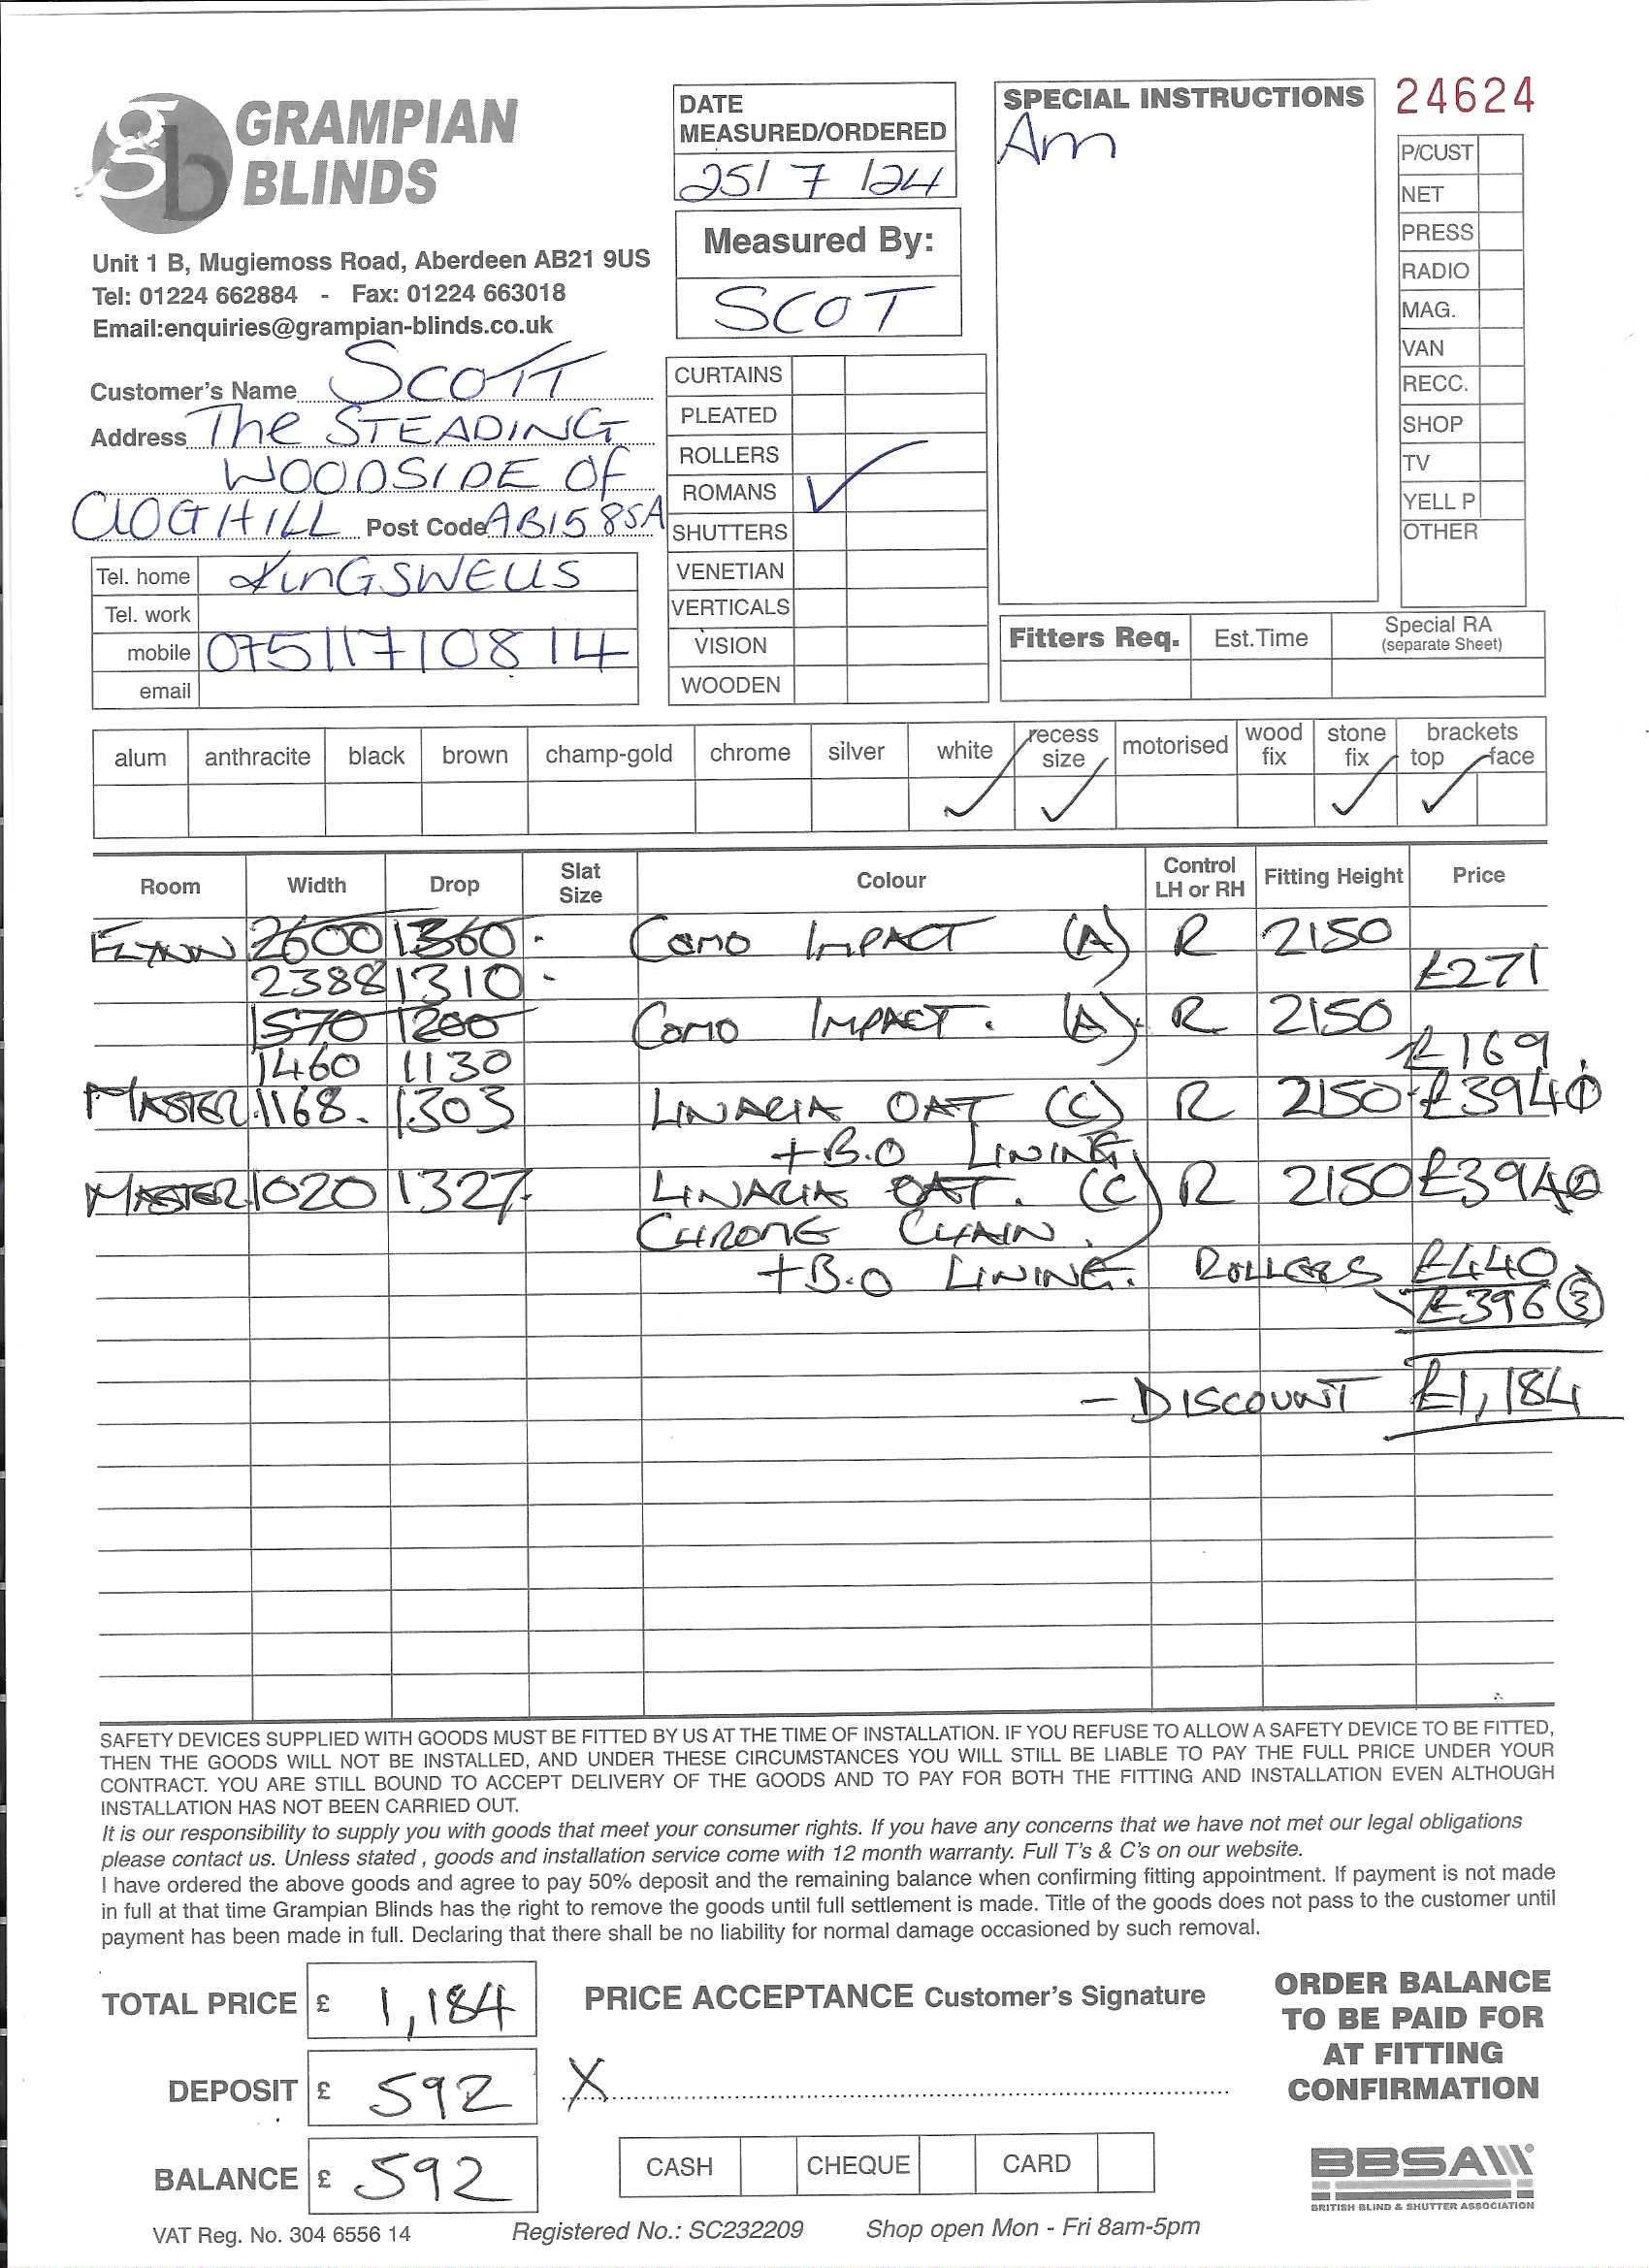 GRAMPIAN
BLINDS
Unit 1 B, Mugiemoss Road, Aberdeen AB21 9US
Tel: 01224 662884 - Fax: 01224 663018
Email:enquiries@grampian-blinds.co.uk
Customer's Name SCOTT
Address The STEADING
WOODSIDE OF
ClOGHILL Post Code AB15 8SA
Tel. home KINGSWELLS
Tel. work
mobile 07511710814
email
DATE
MEASURED/ORDERED
25/ 7 /24
Measured By:
SCOT
CURTAINS
PLEATED
ROLLERS
ROMANS ✓
SHUTTERS
VENETIAN
VERTICALS
VISION
WOODEN
SPECIAL INSTRUCTIONS
Am
24624
P/CUST
NET
PRESS
RADIO
MAG.
VAN
RECC.
SHOP
TV
YELL P
OTHER
Fitters Req. Est.Time Special RA
(separate Sheet)
alum anthracite black brown champ-gold chrome silver white recess size motorised wood fix stone fix brackets top face
✓ ✓ ✓ ✓
Room Width Drop Slat Size Colour Control LH or RH Fitting Height Price
FLYNN 2600 1360 COMO IMPACT (A) R 2150
2388 1310 £271
1570 1200 COMO IMPACT. (A). R 2150
1460 1130 £169.
MASTER 1168. 1303 LINARIA OAT (C) R 2150 £394 ①
+ B.O LINING
MASTER 1020 1327. LINARIA OAT. (C) R 2150 £394 ②
CHROME CHAIN.
+ B.O LINING. ROLLERS £440
£396 ③
- DISCOUNT £1,184
SAFETY DEVICES SUPPLIED WITH GOODS MUST BE FITTED BY US AT THE TIME OF INSTALLATION. IF YOU REFUSE TO ALLOW A SAFETY DEVICE TO BE FITTED,
THEN THE GOODS WILL NOT BE INSTALLED, AND UNDER THESE CIRCUMSTANCES YOU WILL STILL BE LIABLE TO PAY THE FULL PRICE UNDER YOUR
CONTRACT. YOU ARE STILL BOUND TO ACCEPT DELIVERY OF THE GOODS AND TO PAY FOR BOTH THE FITTING AND INSTALLATION EVEN ALTHOUGH
INSTALLATION HAS NOT BEEN CARRIED OUT.
It is our responsibility to supply you with goods that meet your consumer rights. If you have any concerns that we have not met our legal obligations
please contact us. Unless stated , goods and installation service come with 12 month warranty. Full T's & C's on our website.
I have ordered the above goods and agree to pay 50% deposit and the remaining balance when confirming fitting appointment. If payment is not made
in full at that time Grampian Blinds has the right to remove the goods until full settlement is made. Title of the goods does not pass to the customer until
payment has been made in full. Declaring that there shall be no liability for normal damage occasioned by such removal.
TOTAL PRICE £ 1,184
DEPOSIT £ 592
BALANCE £ 592
PRICE ACCEPTANCE Customer's Signature
X
CASH CHEQUE CARD
ORDER BALANCE
TO BE PAID FOR
AT FITTING
CONFIRMATION
BBSA
BRITISH BLIND & SHUTTER ASSOCIATION
VAT Reg. No. 304 6556 14 Registered No.: SC232209 Shop open Mon - Fri 8am-5pm